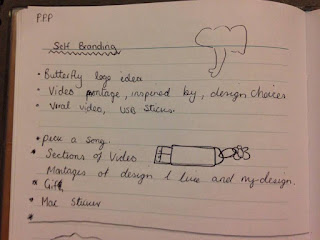 PPP
Self Branding
• Butterfly logo idea
• Video montage, inspired by, design choices
• Viral video, USB Sticks.
• pick a song.
• Sections of Video
Montages of design I like and my design.
• Gift
• Mac Sticker